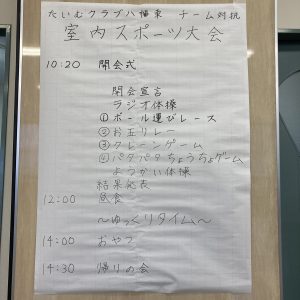 たいむクラブ八幡東 チーム対抗
室内スポーツ大会
10:20 開会式
開会宣言
ラジオ体操
①ボール運びレース
②お玉リレー
③クレーンゲーム
④パタパタちょうちょゲーム
ようかい体操
結果発表
12:00 昼食
～ゆっくりタイム～
14:00 おやつ
14:30 帰りの会